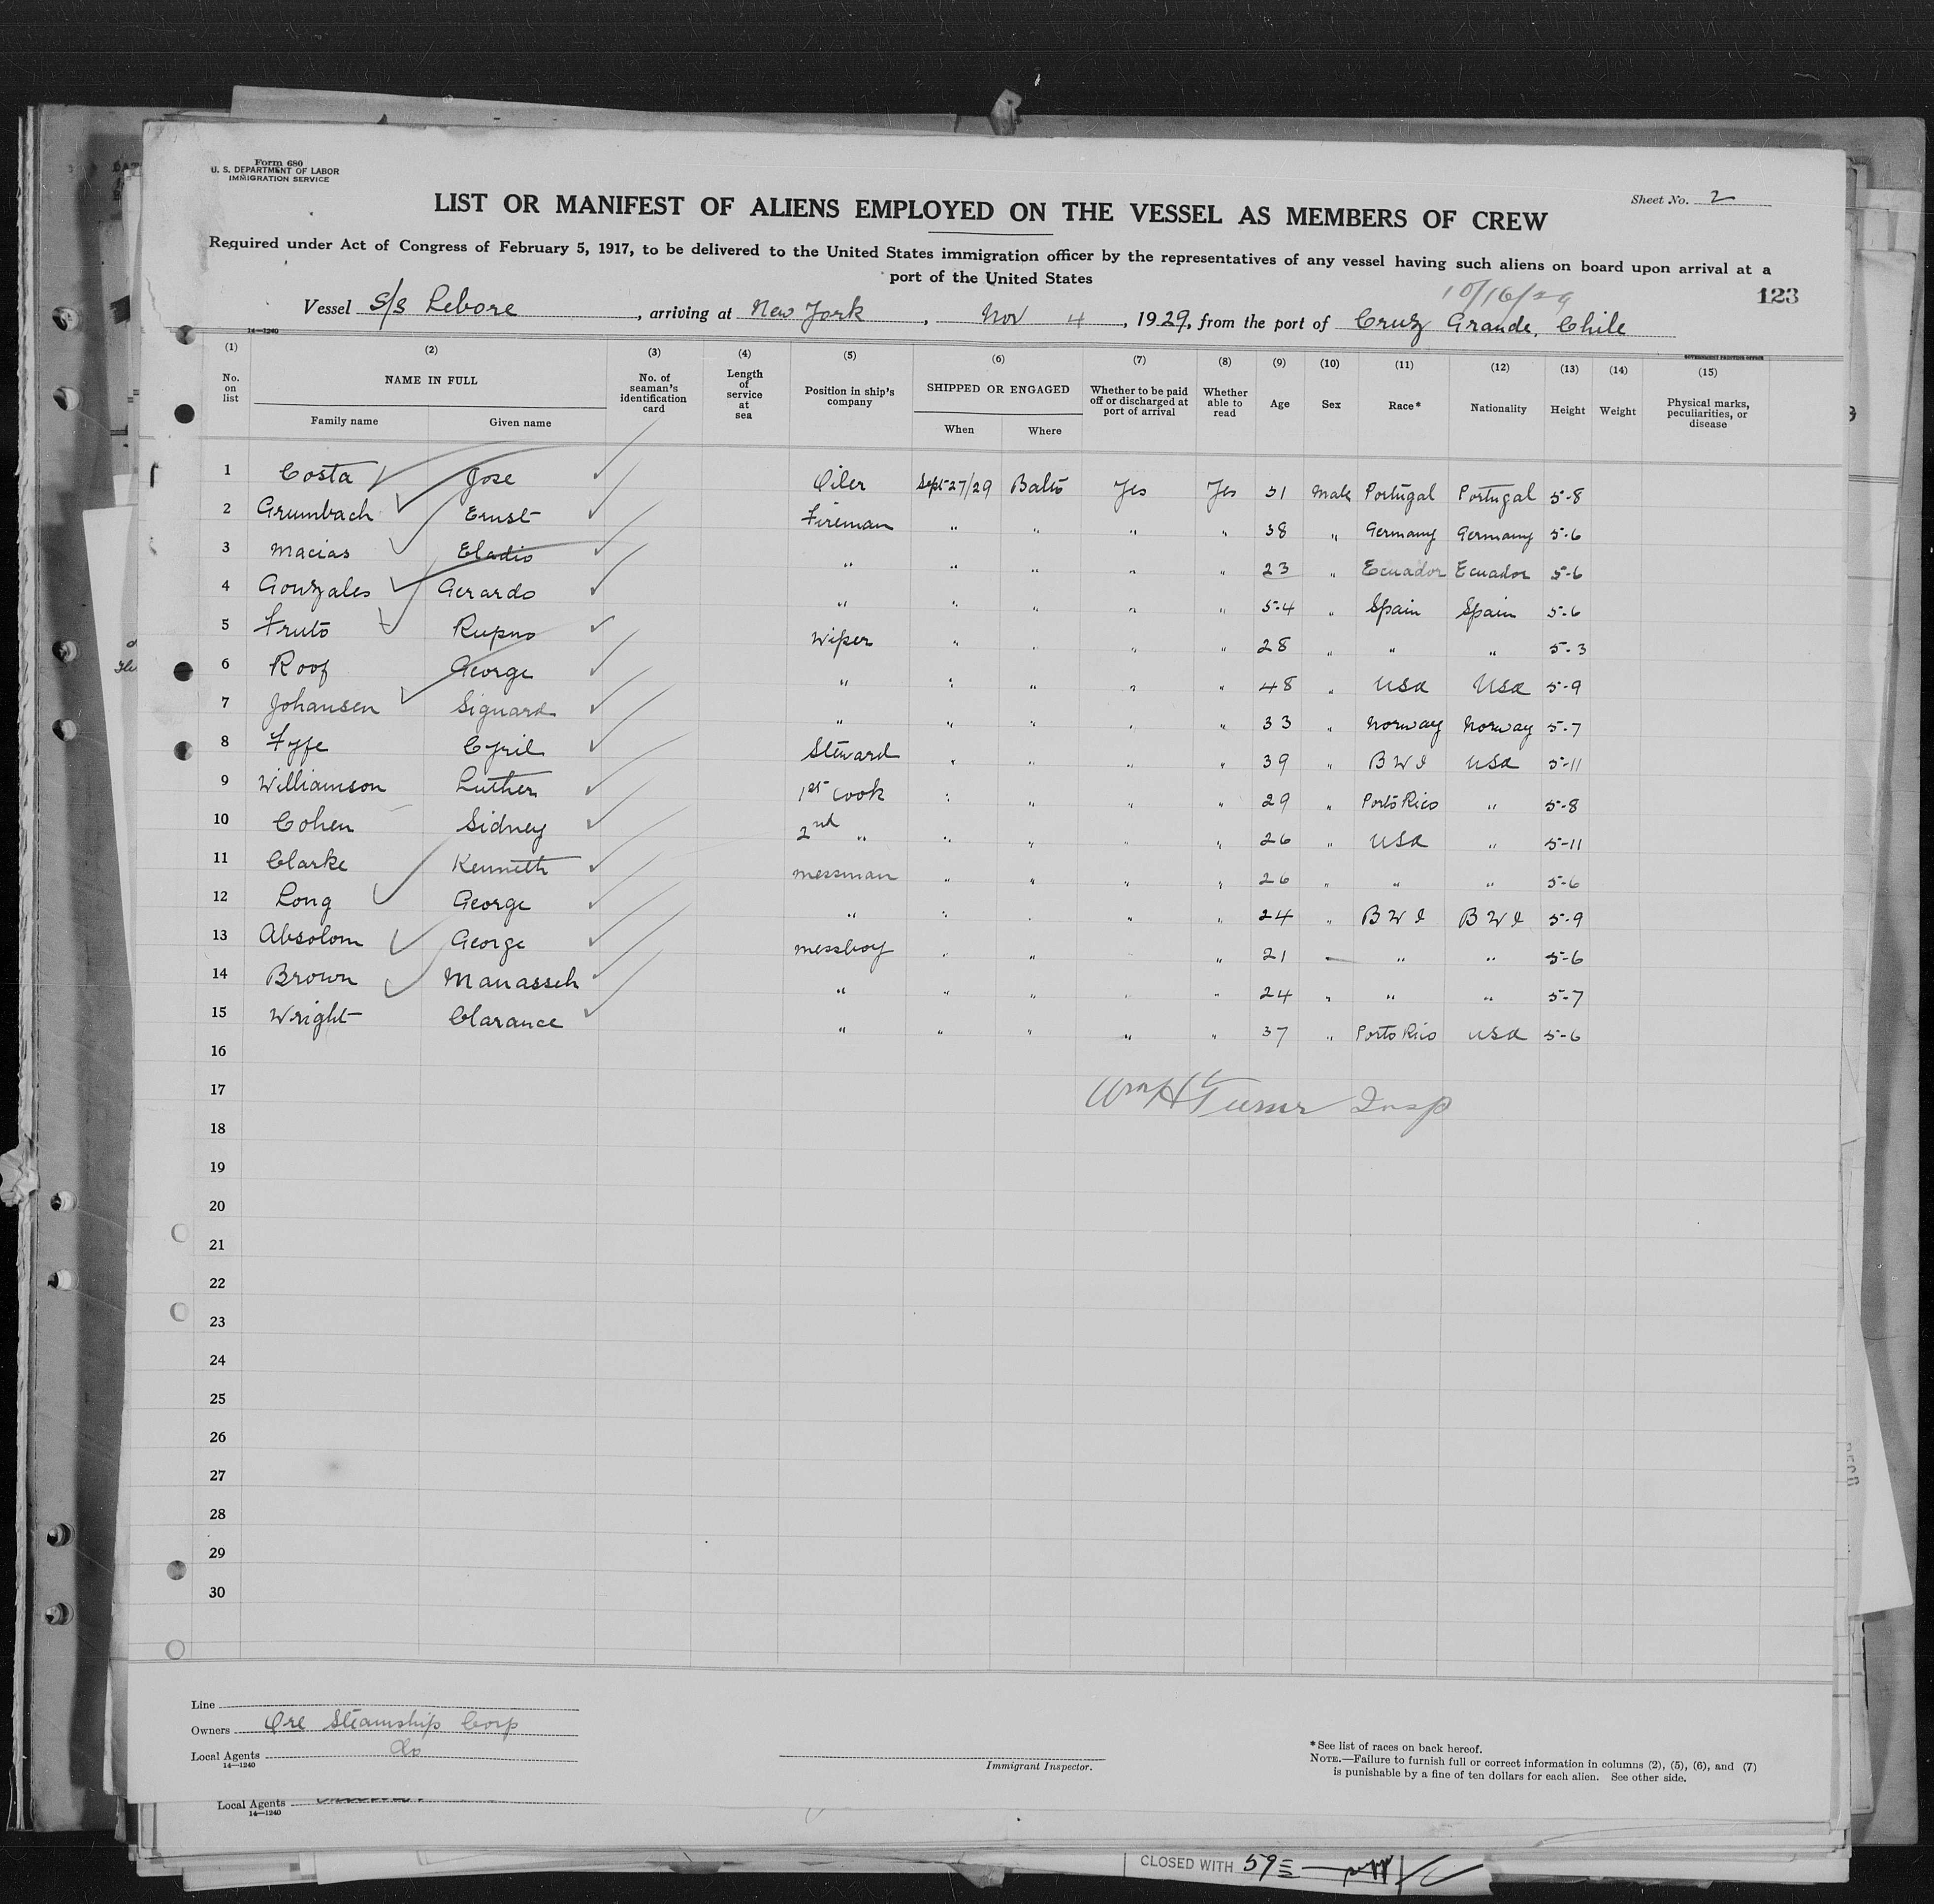 Form 680
U. S. DEPARTMENT OF LABOR
IMMIGRATION SERVICE
Sheet No. 2
LIST OR MANIFEST OF ALIENS EMPLOYED ON THE VESSEL AS MEMBERS OF CREW
Required under Act of Congress of February 5, 1917, to be delivered to the United States immigration officer by the representatives of any vessel having such aliens on board upon arrival at a
port of the United States
10/16/29
123
Vessel S/S Lebore, arriving at New York, Nov 4, 1929, from the port of Cruz Grande, Chile
14—1240
GOVERNMENT PRINTING OFFICE
(1) (2) (3) (4) (5) (6) (7) (8) (9) (10) (11) (12) (13) (14) (15)
No. on list
NAME IN FULL
Family name
Given name
No. of seaman's identification card
Length of service at sea
Position in ship's company
SHIPPED OR ENGAGED
When
Where
Whether to be paid off or discharged at port of arrival
Whether able to read
Age
Sex
Race*
Nationality
Height
Weight
Physical marks, peculiarities, or disease
1 Costa Jose Oiler Sept 27/29 Balto Yes Yes 31 Male Portugal Portugal 5-8
2 Grumbach Ernst Fireman " " " " 38 " Germany Germany 5-6
3 Macias Eladio " " " " " 23 " Ecuador Ecuador 5-6
4 Gonzales Gerardo " " " " " 54 " Spain Spain 5-6
5 Fruto Rupno Wiper " " " " 28 " " " 5-3
6 Roof George " " " " " 48 " USA USA 5-9
7 Johansen Siguard " " " " " 33 " Norway Norway 5-7
8 Fyfe Cyril Steward " " " " 39 " B W I USA 5-11
9 Williamson Luther 1st Cook " " " " 29 " Porto Rico " 5-8
10 Cohen Sidney 2nd " " " " " 26 " USA " 5-11
11 Clarke Kenneth messman " " " " 26 " " " 5-6
12 Long George " " " " " 24 " B W I B W I 5-9
13 Absolom George messboy " " " 21 " " " 5-6
14 Brown Manasseh " " " " " 24 " " " 5-7
15 Wright Clarance " " " " " 37 " Porto Rico USA 5-6
16
17
Wm H Turner Insp
18
19
20
21
22
23
24
25
26
27
28
29
30
Line
Owners Ore Steamship Corp
Local Agents Do
14—1240
Immigrant Inspector.
*See list of races on back hereof.
NOTE.—Failure to furnish full or correct information in columns (2), (5), (6), and (7)
is punishable by a fine of ten dollars for each alien. See other side.
Local Agents
14—1240
CLOSED WITH 59E